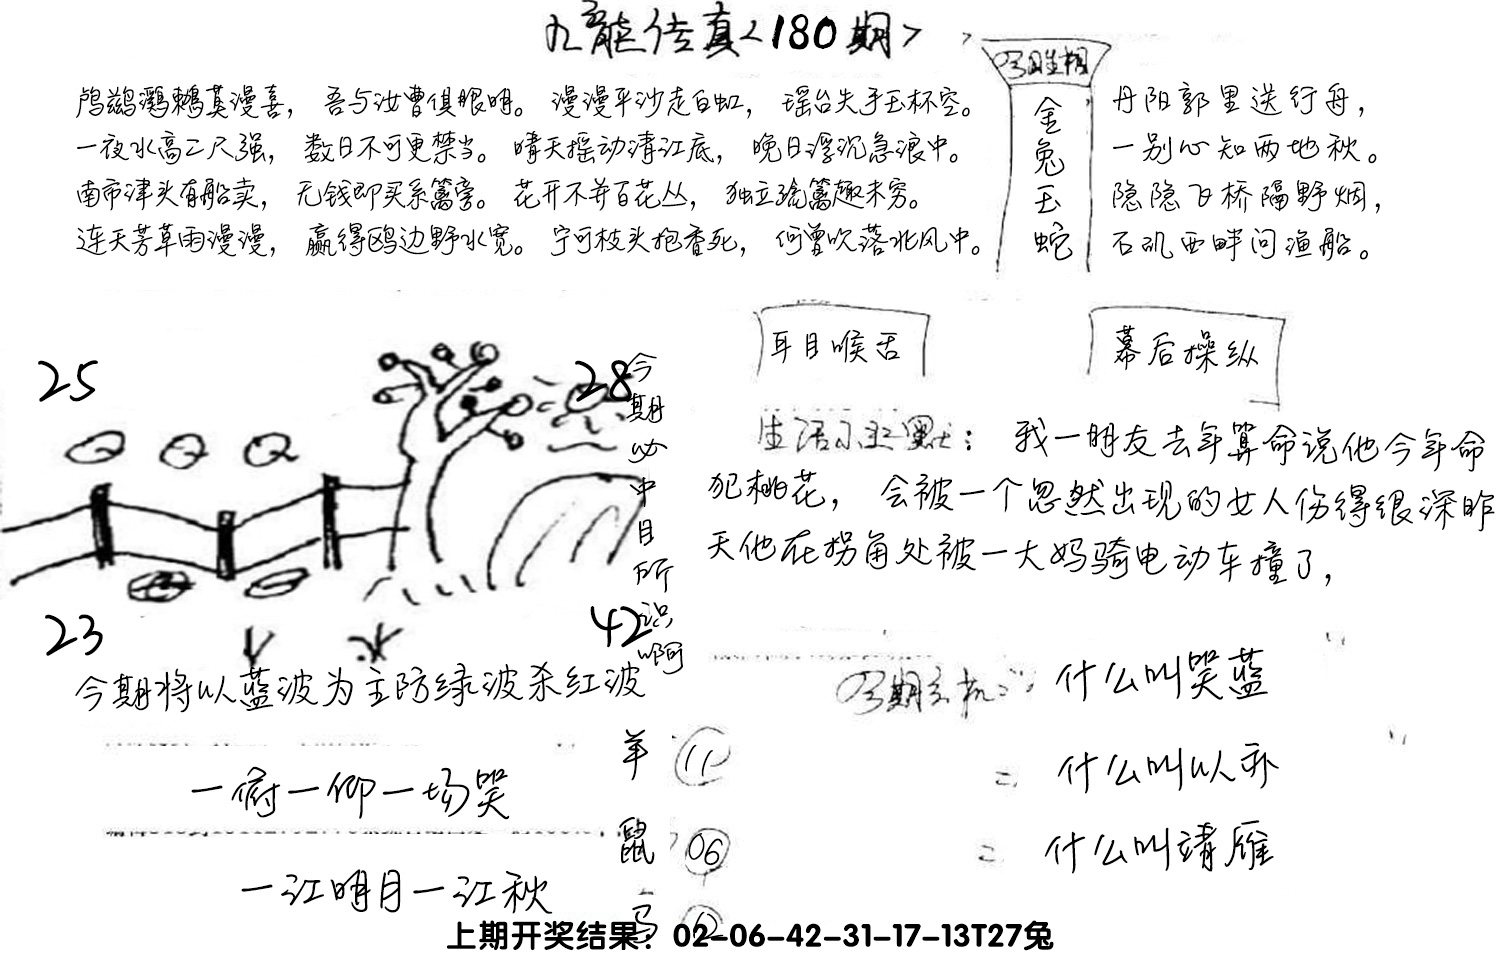 九龙传真<180期>
鸬鹚鸂鶒莫漫喜，吾与汝曹俱眼明。漫漫平沙走白虹，瑶台失手玉杯空。
一夜水高二尺强，数日不可更禁当。晴天摇动清江底，晚日浮沉急浪中。
南市津头有船卖，无钱即买系篱旁。花开不并百花丛，独立疏篱趣未穷。
连天芳草雨漫漫，赢得鸥边野水宽。宁可枝头抱香死，何曾吹落北风中。
金兔玉蛇
丹阳郭里送行舟，
一别心知两地秋。
隐隐飞桥隔野烟，
石矶西畔问渔船。
耳目喉舌
幕后操纵
25
28
23
42
今期必中目所识啊
生活小幽默：我一朋友去年算命说他今年命
犯桃花，会被一个忽然出现的女人伤得很深昨
天他在拐角处被一大妈骑电动车撞了，
今期将以蓝波为主防绿波杀红波
一俯一仰一场笑
一江明月一江秋
羊 11
鼠 06
马
今期玄机：什么叫哭蓝
= 什么叫以亦
= 什么叫靖雁
上期开奖结果：02-06-42-31-17-13T27兔